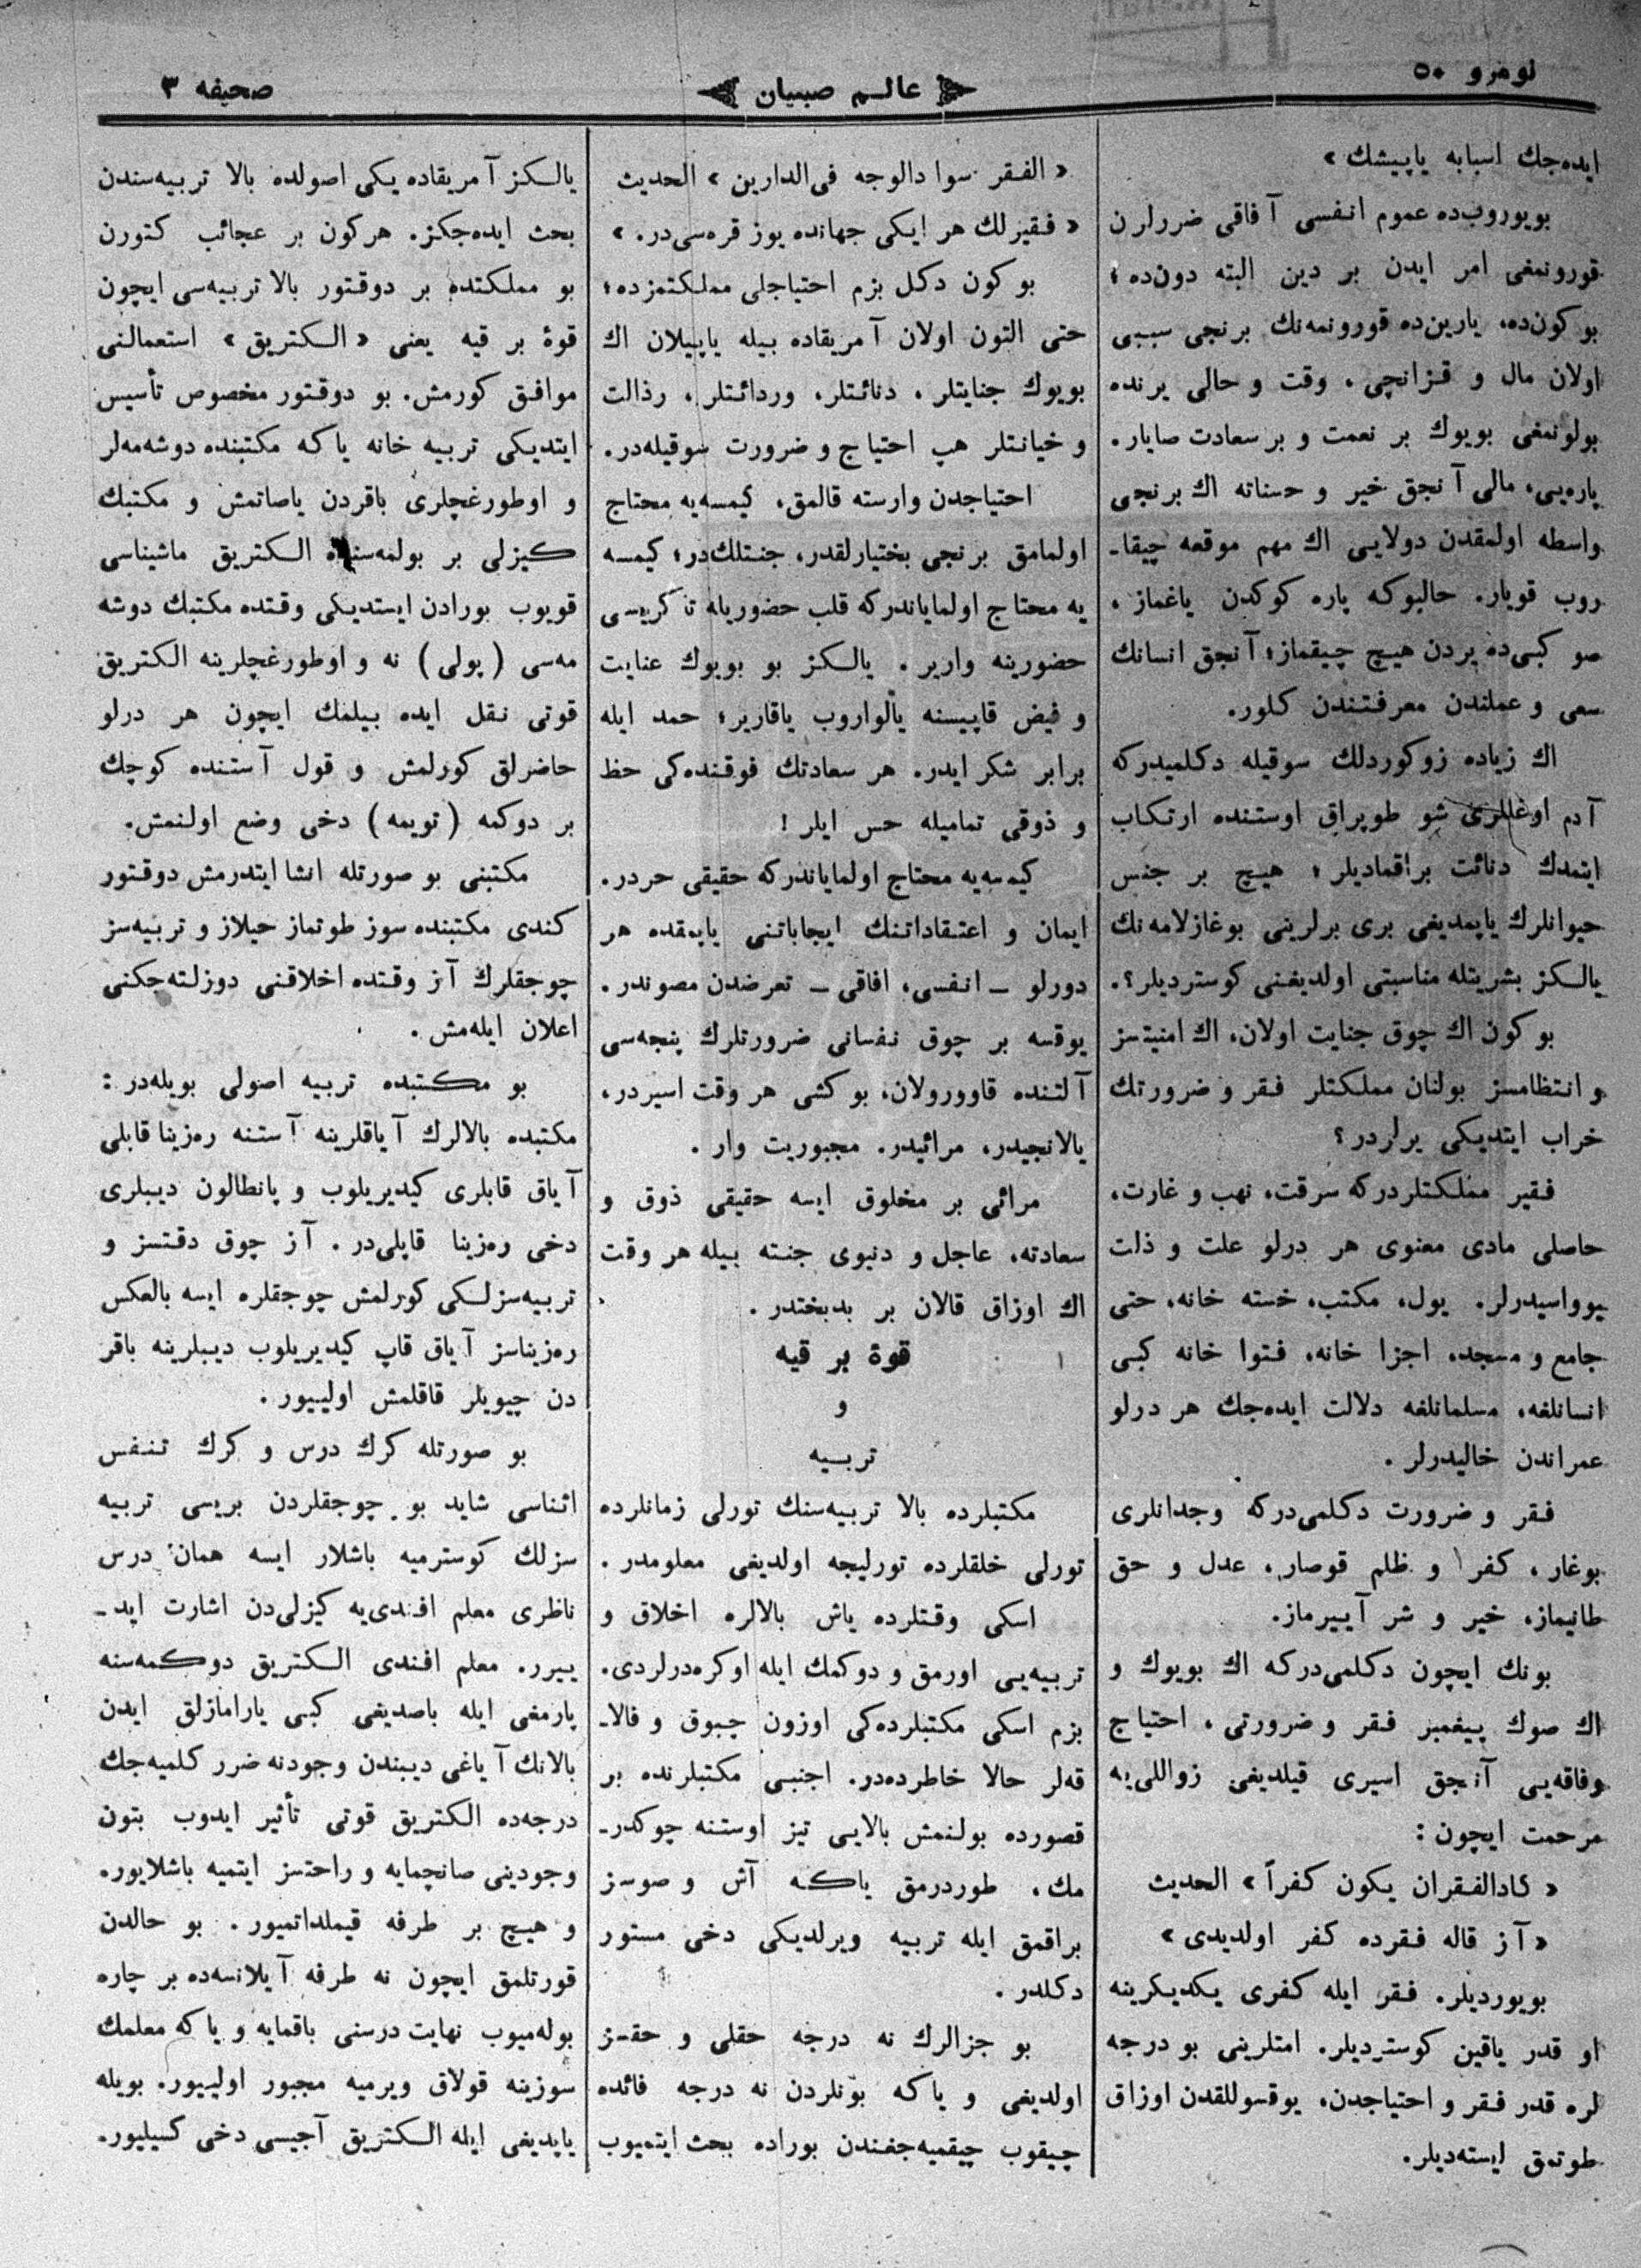 نومرو ٥٠
عالـم صبیان
صحیفه ٣
ایده‌جك اسبابه یاپیشك »
بویوروب‌ده عموم انفسی آفاقی ضررلرن
قورونمغی امر ایدن بر دین البته دون‌ده ؛
بوكون‌ده، یارین‌ده قورونمه‌نك برنجی سببی
اولان مال و قـزانچی ، وقت و حالی یرنده
بولونمغی بویوك بر نعمت و بر سعادت صایار.
پاره‌یی، مالی آنجق خیر و حسناته اك برنجی
واسطه اولمقدن دولایی اك مهم موقعه چیقا-
روب قویار. حالبوكه پاره كوكدن یاغماز ،
صو كبی‌ده یردن هیچ چیقماز؛ آنجق انسانك
سعی و عملندن معرفـتـندن كلور.
اك زیاده زوكوردلك سوقیله دكلمیدركه
آدم اوغللری شو طوپراق اوستنده ارتكاب
ایتمدك دنائت براقمادیلر ؛ هیچ بر جنس
حیوانلرك یاپمدیغی بری برلرینی بوغازلامه‌نك
یالـكز بشریتله مناسبتی اولدیغنی كوستردیلر؟.
بوكون اك چوق جنایت اولان، اك امنیتسز
و انتظامسز بولنان مملكتلر فـقر و ضرورتك
خراب ایتدیكی یرلردر ؟
فـقیر مملكتلردركه سرقت، نهب و غارت،
حاصلی مادی معنوی هر درلو علت و ذلت
یوواسیدرلر. یول، مكتب، خسته خانه، حتی
جامع و مسجد، اجزا خانه، فـتوا خانه كبی
انسانلغه، مسلمانلغه دلالت ایده‌جك هر درلو
عمراندن خالیدرلر .
فـقر و ضرورت دكلمی‌دركه وجدانلری
بوغار ، كفر و ظلم قوصار، عدل و حق
طانیماز، خیر و شر آییرماز.
بونك ایچون دكلمی‌دركه اك بویوك و
اك صوك پیغمبر فـقر و ضرورتی ، احتیاج
وفاقه‌یی آنجق اسیری قیلدیغی زواللی‌یه
مرحمت ایچون :
« كادالفـقران یكون كفراً » الحدیث
« آز قاله فـقرده كفر اولدیدی »
بویوردیلر. فـقر ایله كفری یكدیكرینه
او قدر یاقین كوستردیلر. امتلرینی بو درجه
لره قدر فـقر و احتیاجدن، یوقسوللقدن اوزاق
طوتمق ایسته‌دیلر.
« الفـقر سوا دالوجه فی‌الدارین » الحدیث
« فـقیرلك هر ایكی جهانده یوز قره‌سی‌در. »
بوكون دكل بزم احتیاجلی مملكتمزده؛
حتی التون اولان آمریقاده بیله یاپیلان اك
بویوك جنایتلر ، دنائـتلر، وردائـتلر، رذالت
و خیانـتلر هپ احتیاج و ضرورت سوقیله‌در.
احتیاجدن وارسته قالمق، كیمسه‌یه محتاج
اولمامق برنجی بختیارلقدر، جنـتلك‌در؛ كیمسه
یه محتاج اولمایاندركه قلب حضوریله تاكریسی
حضورینه واریر . یالـكز بو بویوك عنایت
و فیض قاپیسنه یالواروب یاقاریر؛ حمد ایله
برابر شكر ایدر. هر سعادتك فوقـنده‌كی حظ
و ذوقی تمامیله حس ایلر !
كیمسه‌یه محتاج اولمایاندركه حقیقی حردر.
ایمان و اعتـقاداتـنك ایجاباتـنی یاپمقده هر
دورلو ـ انفسی، افاقی ـ تعرضدن مصوندر.
یوقسه بر چوق نفسانی ضرورتلرك پنجه‌سی
آلتـنده قاوورولان، بوكشی هر وقت اسیردر،
یالانجیدر، مرائیدر. مجبوریت وار .
مرائی بر مخلوق ایسه حقیقی ذوق و
سعادته، عاجل و دنیوی جنـته بیله هر وقت
اك اوزاق قالان بر بدبختدر .
قوهٔ بر قیه
و
تربـیه
مكتبلرده بالا تربیه‌سنك تورلی زمانلرده
تورلی خلقلرده تورلیجه اولدیغی معلومدر .
اسكی وقـتلرده یاش بالالره اخلاق و
تربیه‌یی اورمق و دوكمك ایله اوكره‌درلردی.
بزم اسكی مكتبلرده‌كی اوزون چبوق و فالا-
قه‌لر حالا خاطرده‌در. اجنبی مكتبلرنده بر
قصورده بولنمش بالایی تیز اوستـنه چوكدر-
مك ، طوردرمق یاكه آش و صوسز
براقمق ایله تربیه ویرلدیكی دخی مستور
دكلدر .
بو جزالرك نه درجه حقلی و حقسز
اولدیغی و یاكه بونلردن نه درجه فائده
چیقوب چیقمیه‌جغندن بوراده بحث ایتمیوب
یالـكز آمریقاده‌یكی اصولده بالا تربیه‌سندن
بحث ایده‌جكز. هركون بر عجائب كتورن
بو مملكتده بر دوقـتور بالا تربیه‌سی ایچون
قوهٔ بر قیه یعنی « الـكتریق » استعمالنی
موافـق كورمش. بو دوقـتور مخصوص تأسیس
ایتدیكی تربیه خانه یاكه مكتبنده دوشه‌مه‌لر
و اوطورغچلری باقردن یاصاتمش و مكتبك
كیزلی بر بولمه‌سنده الـكتریق ماشیناسی
قویوب بورادن ایستدیكی وقـتده مكتبك دوشه
مه‌سی ( پولی ) نه و اوطورغچلرینه الكتریق
قوتی نـقل ایده بیلمك ایچون هر درلو
حاضرلق كورلمش و قول آستـنده كوچك
بر دوكمه ( تویمه ) دخی وضع اولنمش.
مكتبنی بو صورتله انشا ایتدرمش دوقـتور
كندی مكتبنده سوز طوتماز حیلاز و تربیه‌سز
چوجقلرك آز وقـتده اخلاقـنی دوزلته‌جكنی
اعلان ایله‌مش .
بو مكـتبده تربیه اصولی بویله‌در :
مكتبده بالالرك آیاقلرینه آستـنه ره‌زینا قابلی
آیاق قابلری كیدیریلوب و پانطالون دیبلری
دخی ره‌زینا قاپلی‌در . آز چوق دقـتسز و
تربیه‌سزلـكی كورلمش چوجقلره ایسه بالعكس
ره‌زیناسز آیاق قاپ كیدیریلوب دیبلرینه باقر
دن چیویلر قاقلمش اولییور .
بو صورتله كرك درس و كرك تـنـفس
اثـناسی شاید بو چوجقلردن بریسی تربیه
سزلك كوسترمیه باشلار ایسه همان درس
ناظری معلم افـندی‌یه كیزلی‌دن اشارت اید-
ییرر. معلم افـندی الـكتریق دوكمه‌سنه
پارمغی ایله باصدیغی كبی یارامازلق ایدن
بالانك آیاغی دیبندن وجودنه ضرر كلمیه‌جك
درجه‌ده الكتریق قوتی تأثیر ایدوب بتون
وجودینی صانچمایه و راحتسز ایتمیه باشلایور.
و هیچ بر طرفه قیملداتمیور . بو حالدن
قورتلمق ایچون نه طرفه آیلانسه‌ده بر چاره
بوله‌میوب نهایت درسنی باقمایه و یاكه معلمك
سوزینه قولاق ویرمیه مجبور اولییور. بویله
یاپدیغی ایله الـكتریق آجیسی دخی كسیلیور.